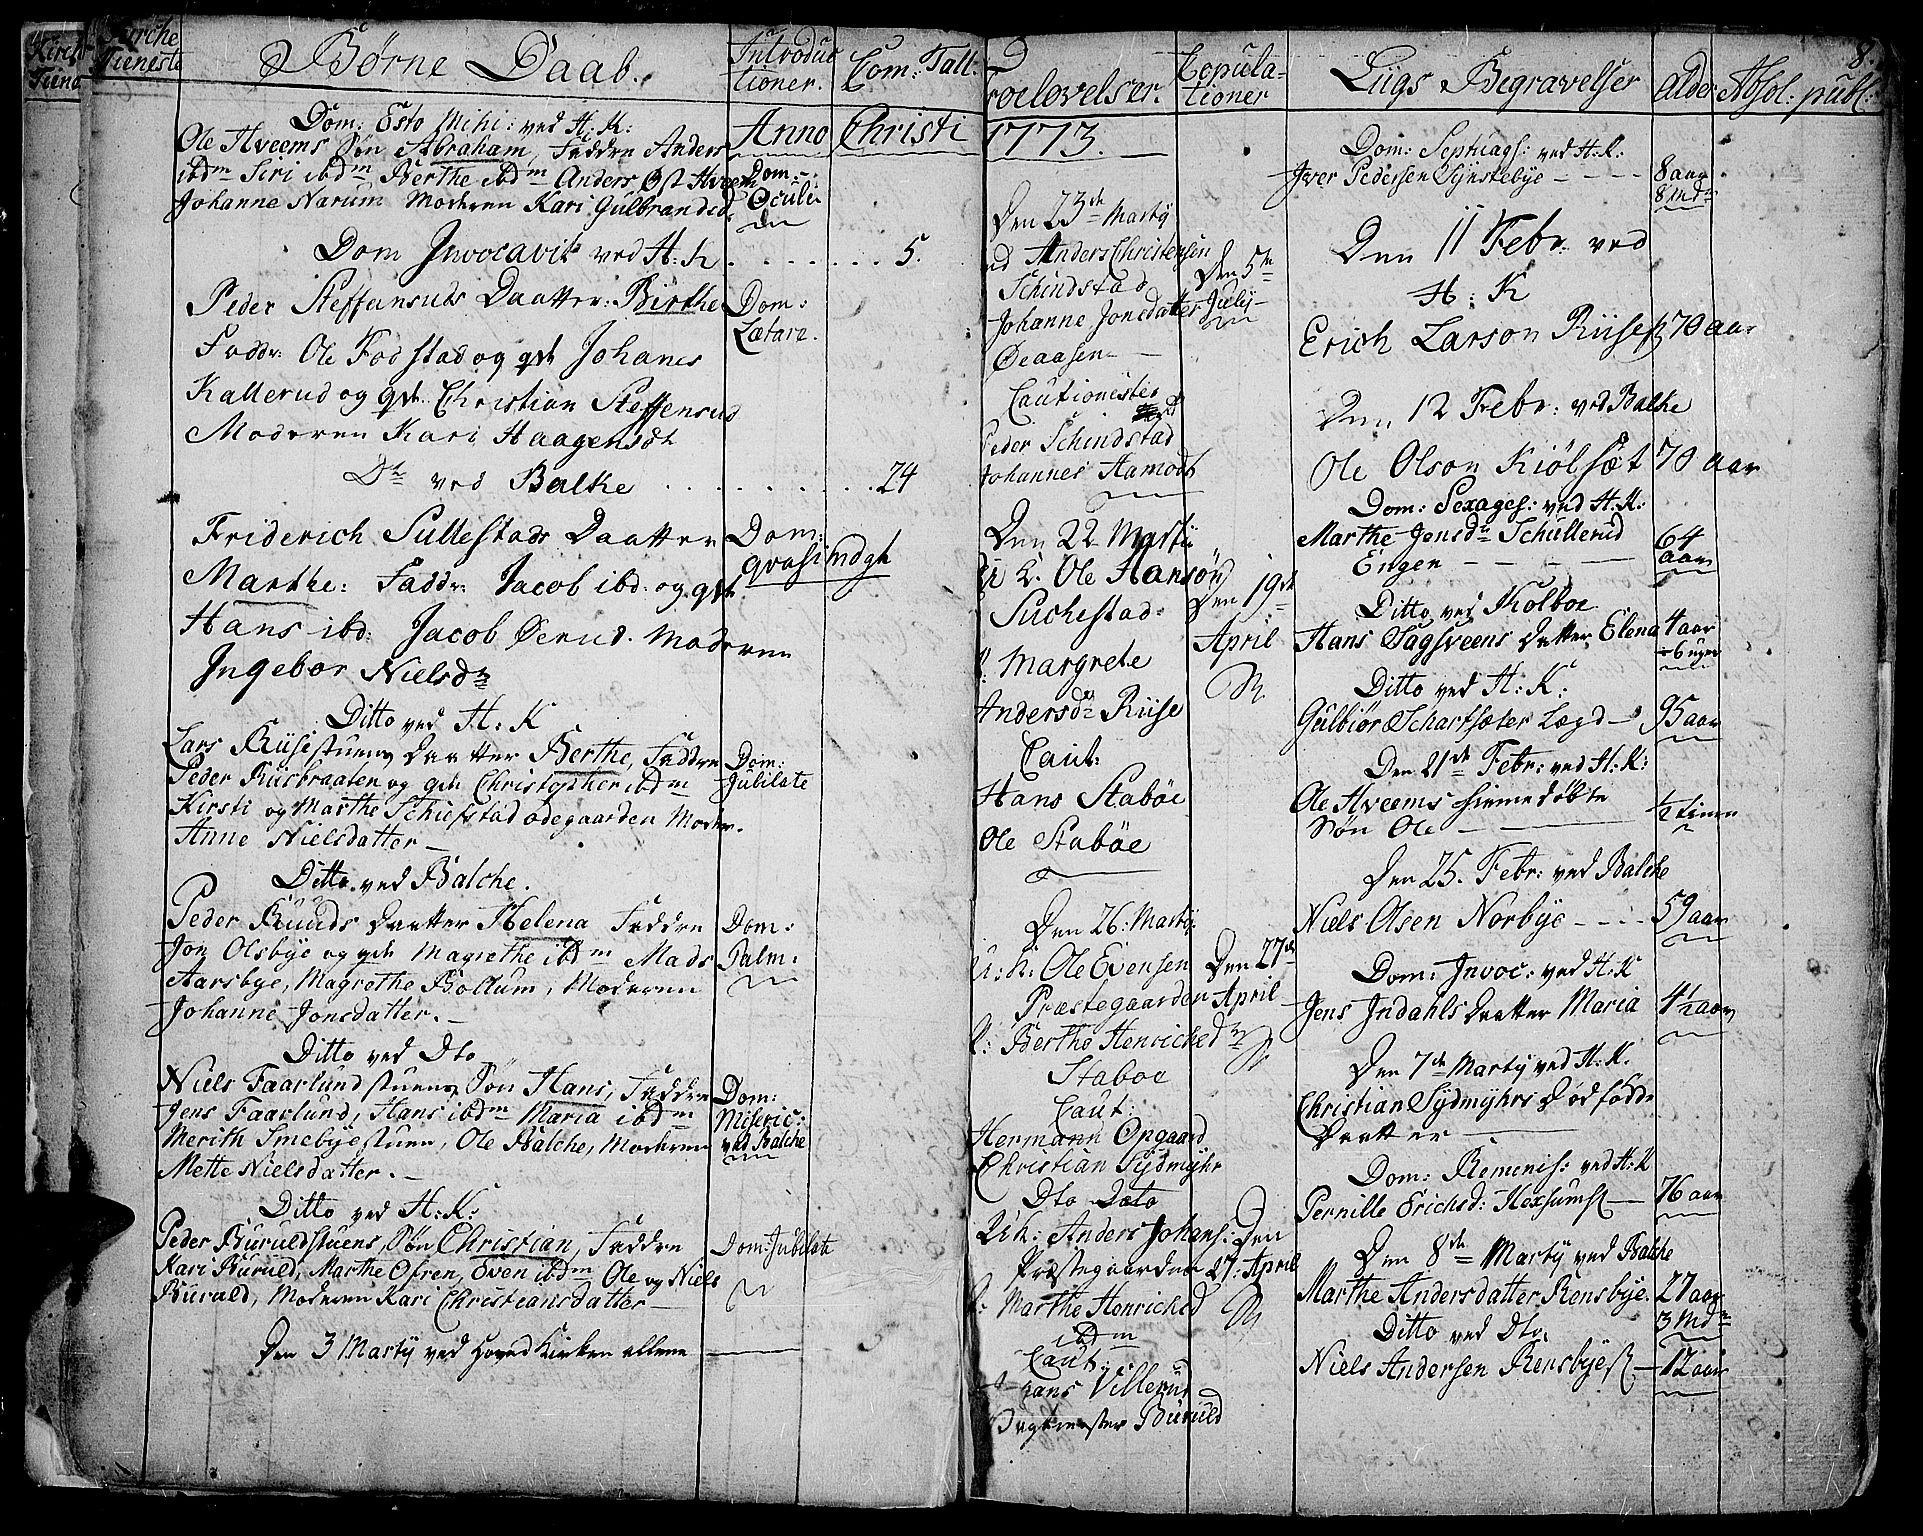 Kirche Tieneste
Børne Daab.
Introductioner.
Com: Tall.
Dom: Esto Mihi: ved H: K:
Anno Christi 1773.
Ole Hveems Søn Abraham, Faddre Anders
ibdm Siri ibdm Berthe ibdm Anders Øst Hveem
Johanne Narum Moderen Kari Gulbrandsd.
Dom: Oculi
Dom Invocavit ved H: K . . . . . . . 5.
Peder Steffensuds Daatter: Birthe
Faddr: Ole Fodstad og qvt Johanes
Kallerud og qvt. Christian Steffensrud
Moderen Kari Haagensdt
Dom: Lætare.
Do ved Balke . . . . . . . . . 24
Friderich Sullestads Daatter
Marthe: Faddr: Jacob ibd: og qvt
Hans ibd: Jacob Øerud. Moderen
Ingebor Nielsdr
Dom: qvasimodgt
Ditto ved H: K
Lars Riisestuens Daatter Berthe, Faddre
Peder Riisbraaten og qde Christopher ibdm
Kirsti og Marthe Schiefstad ødegaarden Moder.
Anne Nielsdatter —
Dom: Jubilate
Ditto. ved Balche.
Peder Ruuds Daatter Helena Faddre
Jon Olsbye og qde Magrethe ibdm Mads
Aarsbye, Magrethe Bollum, Moderen
Johanne Jonsdatter. —
Dom: Palm:
Ditto ved Dto
Niels Faarlundstuens Søn Hans, Faddre
Jens Faarlund, Hans ibdm Maria ibdm
Merith Smebyestuen, Ole Balche, Moderen
Mette Nielsdatter. —
Dom: Miseric: ved Balche
Ditto ved H: K:
Peder Buruldstuens, Søn Christian, Faddre
Kari Buruld, Marthe Ofren, Even ibdm Ole og Niels
Buruld, Moderen Kari Christiansdatter —
Dom: Jubilate
Den 3 Marty ved Hoved Kirken allene —
Troelovelser.
Copulationer
Den 23de Marty
Anders Christensen
Schindstad
Johanne Jonsdatter
Øeaasen —
Cautionister
Peder Schindstad
Johannes Aamodt
Den 5te July —
Den 22 Marty
U k. Ole Hansøn
Suckestad:
P: Margrete
Andersdr Riise
Caut:
Hans Stabøe
Ole Stabøe
Den 19de April
Den 26: Marty:
U: k: Ole Evensen
Præstegaarden
P: Berthe Henrichsdr
Staboe
Caut:
Hermann Opgaard
Christian Sydmyhr
Den 27de April —
Dto Dato
U:k: Anders Johans:
Præstegaarden
P: Marthe Henrichsd
ibdm
Caut:
Hans Villerud
Buruld
Den 27: April
8.
Liigs Begravelser
Alder
Absol: publ:
Dom: Septuags: ved H: K:
Iver Pedersen Synstebye — 8 aar 8 Mdr
Den 11 Febr. ved
H: K
Erich Larson Riise 70 aar
Den 12 Febr: ved Balke
Ole Olson Kiölsæt 70 aar
Dom: Sexages: ved H: K:
Marthe Jensdr Schullerud
Engen — 64 aar
Ditto ved Kolboe
Hans Sagsveens Datter Elena 4 aar 6 uger
Ditto ved H: K:
Gulbiör Scharfsæter Lægd — 95 aar
Den 21de Febr: ved H: K:
Ole Hveems hiemedøbte
Søn Ole — ½ timen
Den 25. Febr: ved Balche
Niels Olsen Norbye — 59 aar
Dom: Invoc: ved H: K
Jens Indahls Daatter Maria 4½ aar
Den 7de Marty ved H: K.
Christian Sydmyhrs Dødfødde
Daatter —
Dom: Reminis: ved H: K
Pernille Erichsd: Hexsum — 76 aar
Den 8de Marty ved Balche
Marthe Andersdatter Rensbye. 27 aar 3 Mdr
Ditto ved Dto:
Niels Andersen Rensbye — 12 aar